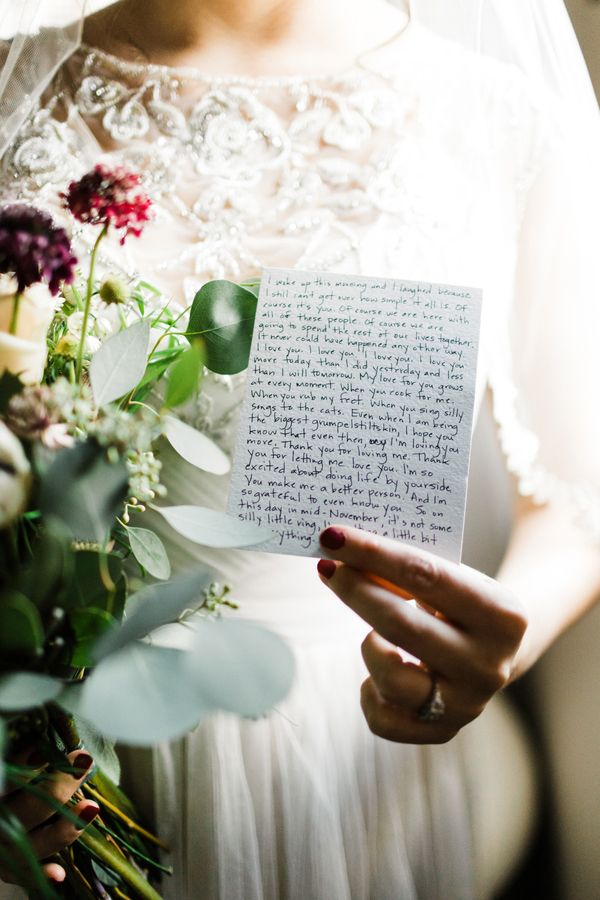 I woke up this morning and I laughed because
I still can't get over how simple it all is. Of
course it's you. Of course we are here with
all of these people. Of course we are
going to spend the rest of our lives together.
It never could have happened any other way.
I love you. I love you. I love you. I love you
more today than I did yesterday and less
than I will tomorrow. My love for you grows
at every moment. When you cook for me.
When you rub my feet. When you sing silly
songs to the cats. Even when I am being
the biggest grumpelstiltskin, I hope you
know that even then, I'm loving you
more. Thank you for loving me. Thank
you for letting me love you. I'm so
excited about doing life by your side.
You make me a better person. And I'm
so grateful to even know you. So on
this day in mid-November, it's not some
silly little ring, a little bit